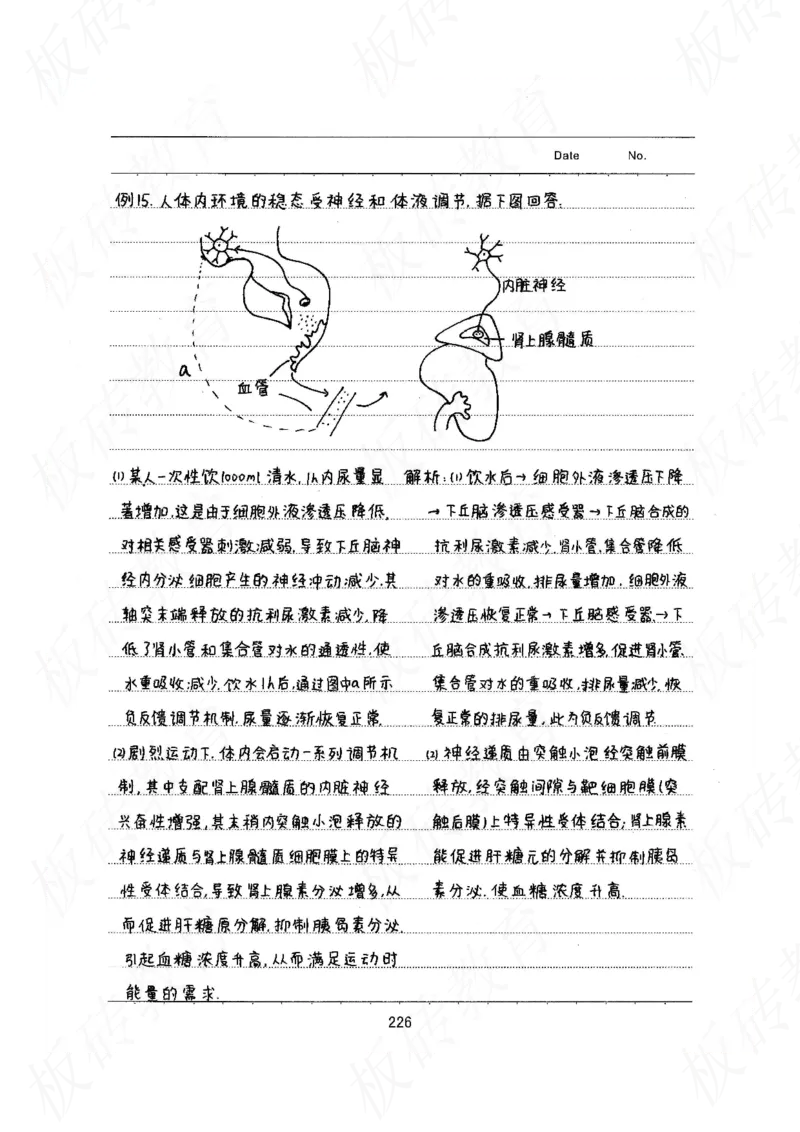 Date No.
例15.人体内环境的稳态受神经和体液调节,据下图回答:
内脏神经
肾上腺髓质
a
血管
(1)某人一次性饮1000ml清水,1h内尿量显
著增加,这是由于细胞外液渗透压降低,
对相关感受器刺激减弱,导致下丘脑神
经内分泌细胞产生的神经冲动减少,其
轴突末端释放的抗利尿激素减少,降
低了肾小管和集合管对水的通透性,使
水重吸收减少.饮水1h后,通过图中a所示
负反馈调节机制,尿量逐渐恢复正常.
(2)剧烈运动下,体内会启动一系列调节机
制,其中支配肾上腺髓质的内脏神经
兴奋性增强,其末稍内突触小泡释放的
神经递质与肾上腺髓质细胞膜上的特异
性受体结合,导致肾上腺素分泌增多,从
而促进肝糖原分解,抑制胰岛素分泌,
引起血糖浓度升高,从而满足运动时
能量的需求.
解析:(1)饮水后→细胞外液渗透压下降
→下丘脑渗透压感受器→下丘脑合成的
抗利尿激素减少,肾小管,集合管降低
对水的重吸收,排尿量增加.细胞外液
渗透压恢复正常→下丘脑感受器→下
丘脑合成抗利尿激素增多,促进肾小管,
集合管对水的重吸收,排尿量减少,恢
复正常的排尿量,此为负反馈调节
(2)神经递质由突触小泡经突触前膜
释放,经突触间隙与靶细胞膜(突
触后膜)上特异性受体结合;肾上腺素
能促进肝糖元的分解并抑制胰岛
素分泌.使血糖浓度升高.
226
板砖教育